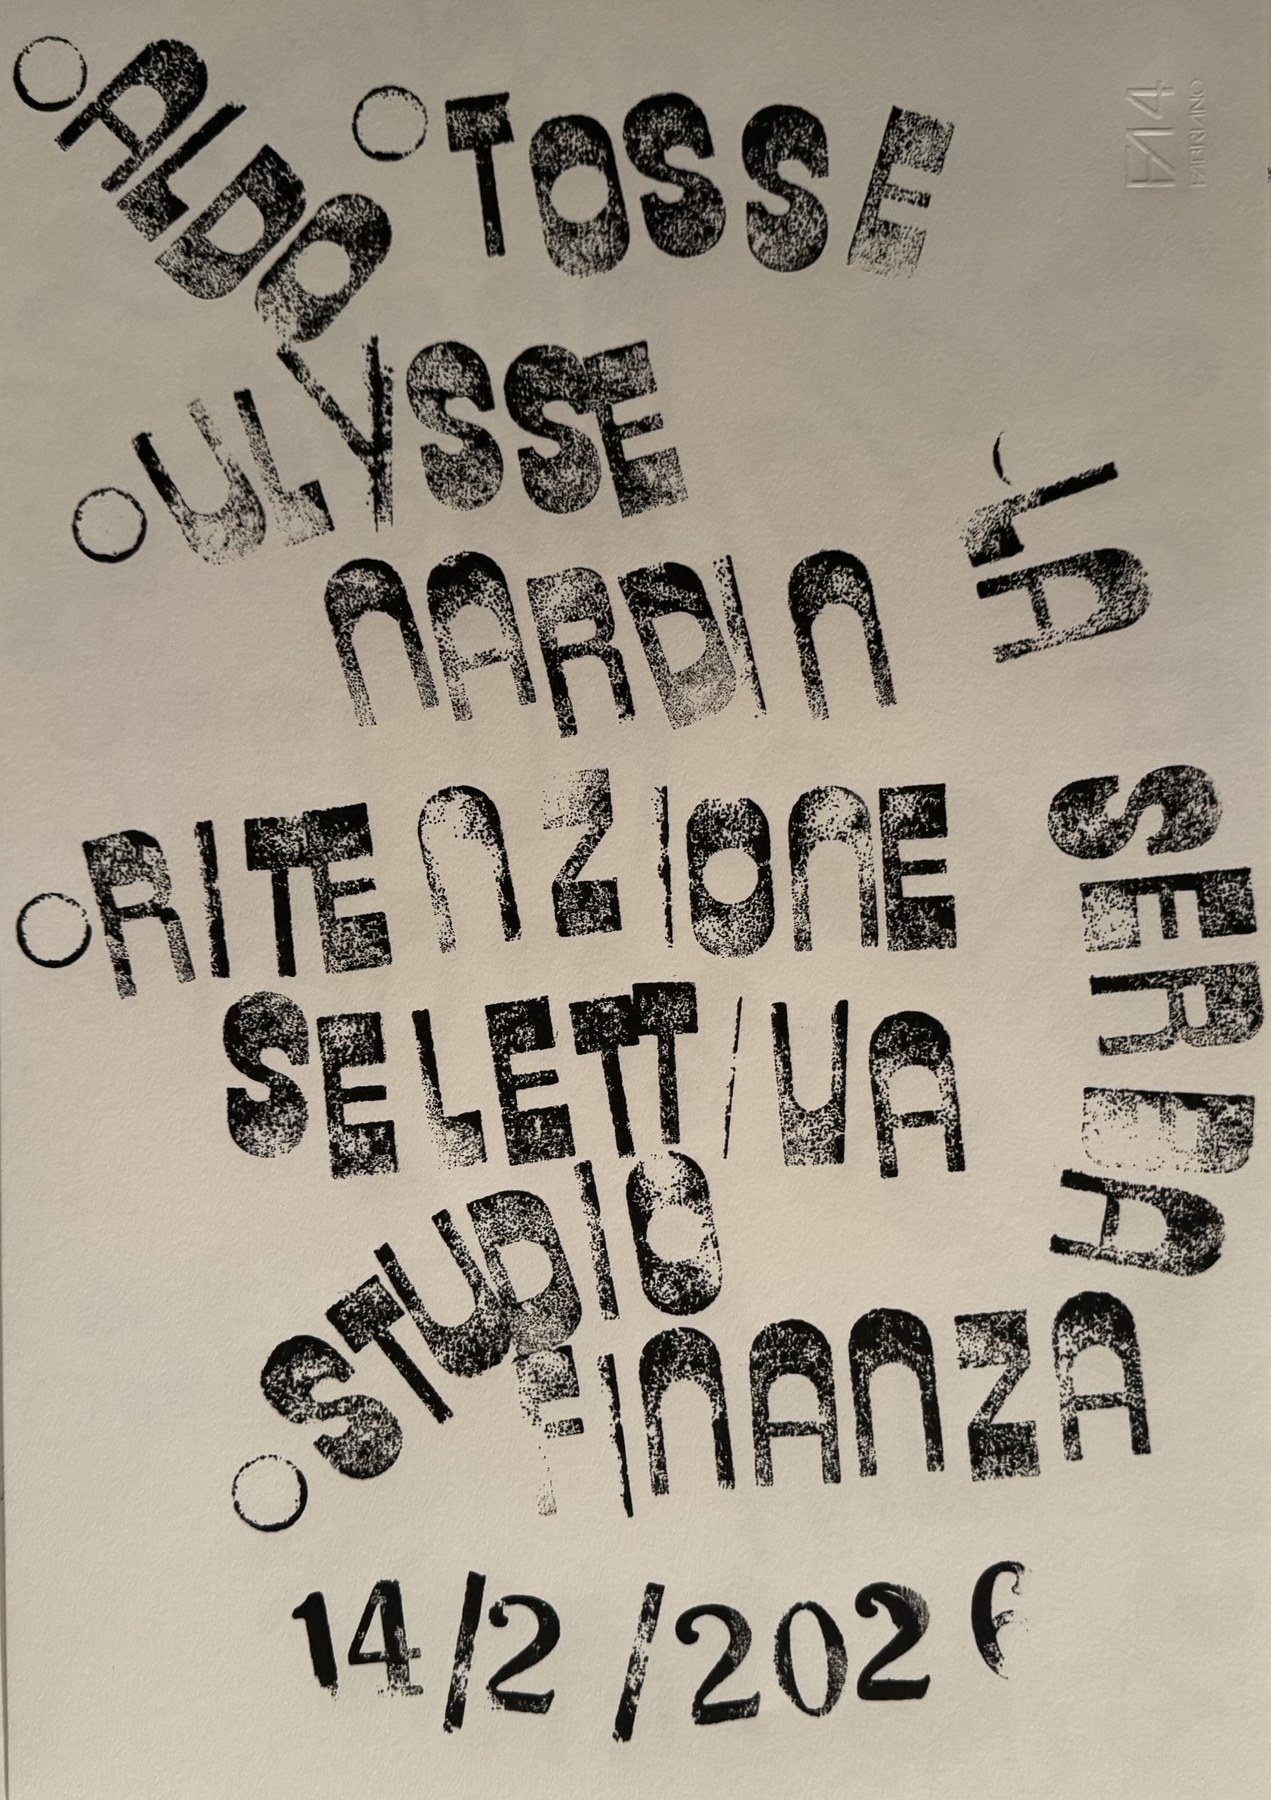 ALDO
TOSSE
ULYSSE
NARDIN
RITENZIONE
SELETTIVA
STUDIO
FINANZA
LA SERRA
14/2/2026
FA4
FABRIANO